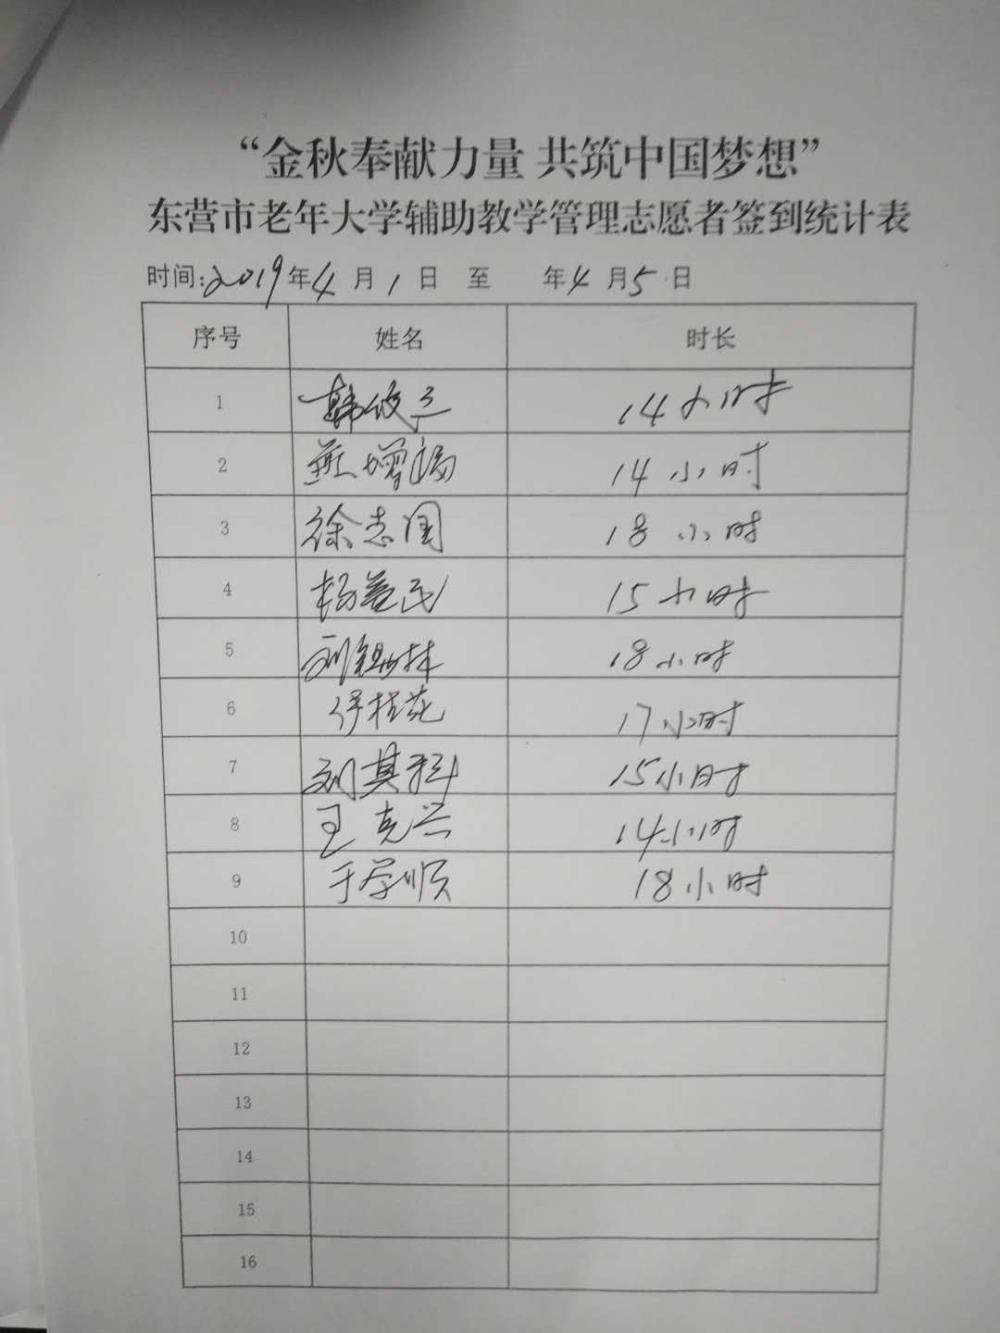 “金秋奉献力量 共筑中国梦想”
东营市老年大学辅助教学管理志愿者签到统计表
时间:2019年4月1日 至 年4月5日
序号 姓名 时长
1 韩 14小时
2 燕增福 14小时
3 徐志国 18小时
4 杨益民 15小时
5 刘锡林 18小时
6 伊桂花 17小时
7 刘其科 15小时
8 王克兴 14小时
9 于学顺 18小时
10
11
12
13
14
15
16